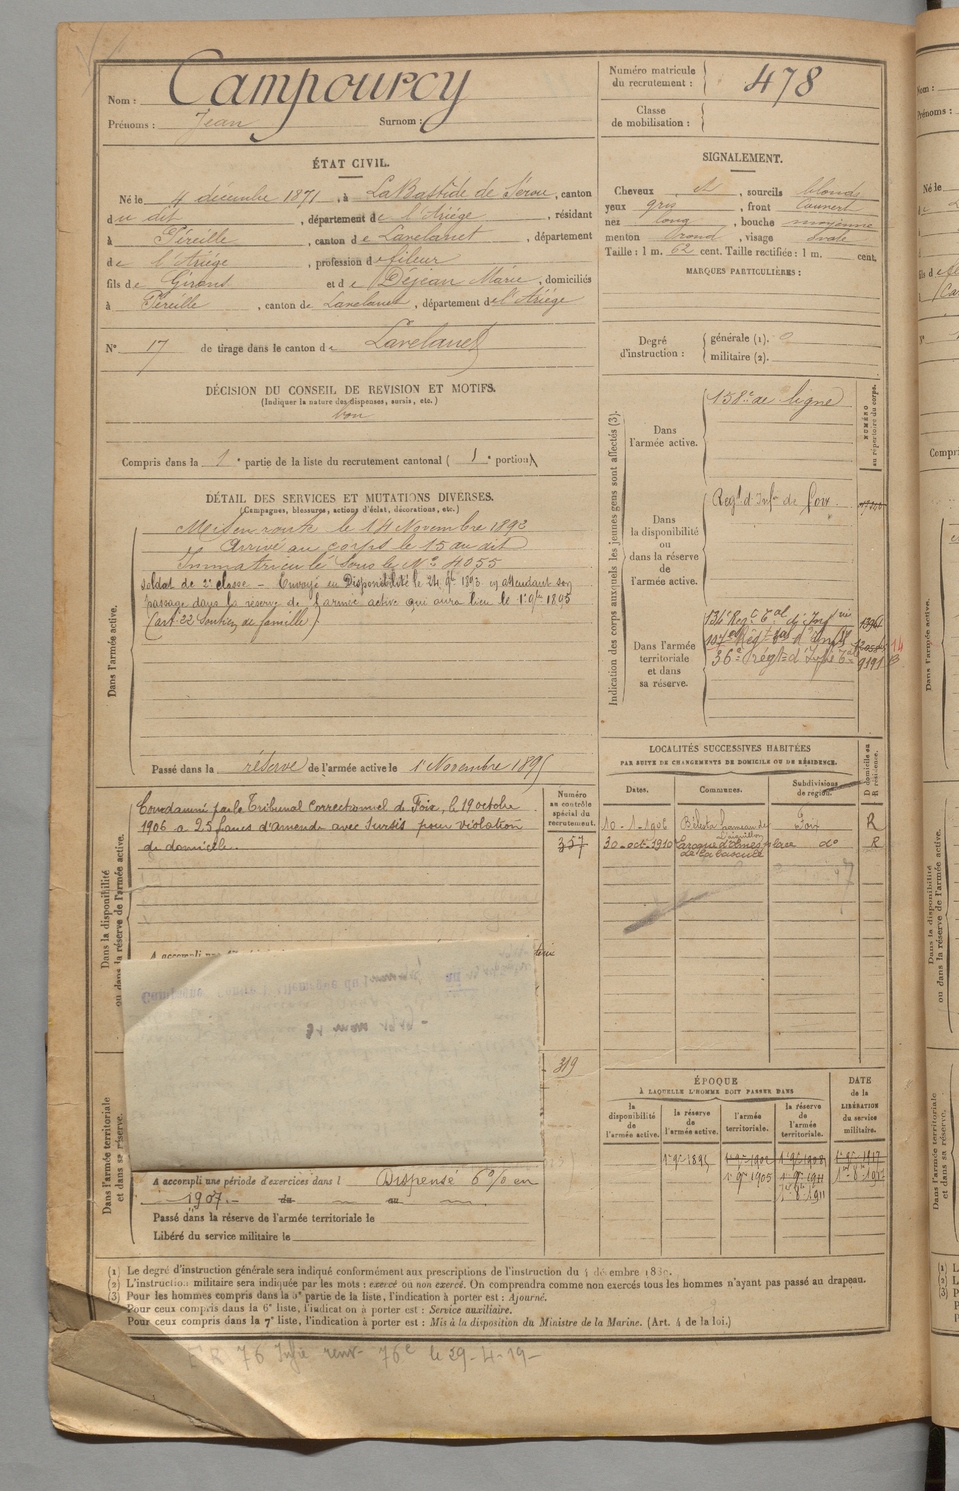 Nom : Campourcy
Prénoms : Jean Surnom :
Numéro matricule du recrutement : 478
Classe de mobilisation :
ÉTAT CIVIL.
Né le 4 décembre 1871, à LaBastide de Sérou, canton
du dit, département de l'Ariége, résidant
à Péreille, canton de Lavelanet, département
de l'Ariége, profession de fileur
fils de Girons et de Déjean Marie, domiciliés
à Péreille, canton de Lavelanet, département de l'Ariége
N° 17 de tirage dans le canton de Lavelanet
SIGNALEMENT.
Cheveux et, sourcils blonds
yeux gris, front couvert
nez long, bouche moyenne
menton rond, visage ovale
Taille : 1 m. 62 cent. Taille rectifiée : 1 m. cent.
MARQUES PARTICULIÈRES :
Degré d'instruction : générale (1).
militaire (2).
DÉCISION DU CONSEIL DE REVISION ET MOTIFS.
(Indiquer la nature des dispenses, sursis, etc.)
bon
Compris dans la 1e partie de la liste du recrutement cantonal (1e portion)
DÉTAIL DES SERVICES ET MUTATIONS DIVERSES.
(Campagnes, blessures, actions d'éclat, décorations, etc.)
Dans l'armée active.
Mis en route le 14 Novembre 1892
Arrivé au corps le 15 au dit
Immatriculé sous le N° 4055
soldat de 2e classe – Envoyé en Disponibilité le 24 9bre 1893 en attendant son
passage dans la réserve de l'armée active qui aura lieu le 1er 9bre 1895
(art. 22 Soutien de famille).
Passé dans la réserve de l'armée active le 1er Novembre 1895
Indication des corps auxquels les jeunes gens sont affectés (3).
NUMÉRO au répertoire du corps.
Dans l'armée active.
158e de ligne
Dans la disponibilité ou dans la réserve de l'armée active.
Regt d'Infie de Foix
Dans l'armée territoriale et dans sa réserve.
134e Regt Tal d'Infie
36e Régt d'Infie Tale 9191
LOCALITÉS SUCCESSIVES HABITÉES
PAR SUITE DE CHANGEMENTS DE DOMICILE OU DE RÉSIDENCE.
Dates. Communes. Subdivisions de région. D domicile ou R résidence.
10-1-1906 Bélesta Foix R
30-oct-1910 do R
Dans la disponibilité ou dans la réserve de l'armée active.
Numéro au contrôle spécial du recrutement.
357
Condamné par le Tribunal Correctionnel de Foix, le 19 octobre
1906 à 25 francs d'amende avec sursis pour violation
de domicile.
A accompli une
Dans l'armée territoriale et dans sa réserve.
319
A accompli une période d'exercices dans l Dispensé 6 % en
1907. du au
Passé dans la réserve de l'armée territoriale le
Libéré du service militaire le
ÉPOQUE
À LAQUELLE L'HOMME DOIT PASSER DANS
la disponibilité de l'armée active.
la réserve de l'armée active.
l'armée territoriale.
la réserve de l'armée territoriale.
DATE de la LIBÉRATION du service militaire.
1er 9bre 1895
1er 9bre 1905 1er 9bre 1911
(1) Le degré d'instruction générale sera indiqué conformément aux prescriptions de l'instruction du
(2) L'instruction militaire sera indiquée par les mots : exercé ou non exercé. On comprendra comme non exercés tous les hommes n'ayant pas passé au drapeau.
(3) Pour les hommes compris dans la 5e partie de la liste, l'indication à porter est : Ajourné.
Pour ceux compris dans la 6e liste, l'indication à porter est : Service auxiliaire.
Pour ceux compris dans la 7e liste, l'indication à porter est : Mis à la disposition du Ministre de la Marine. (Art. 4 de la loi.)
E R 76 Infie renv. 76e le 29-4-19-